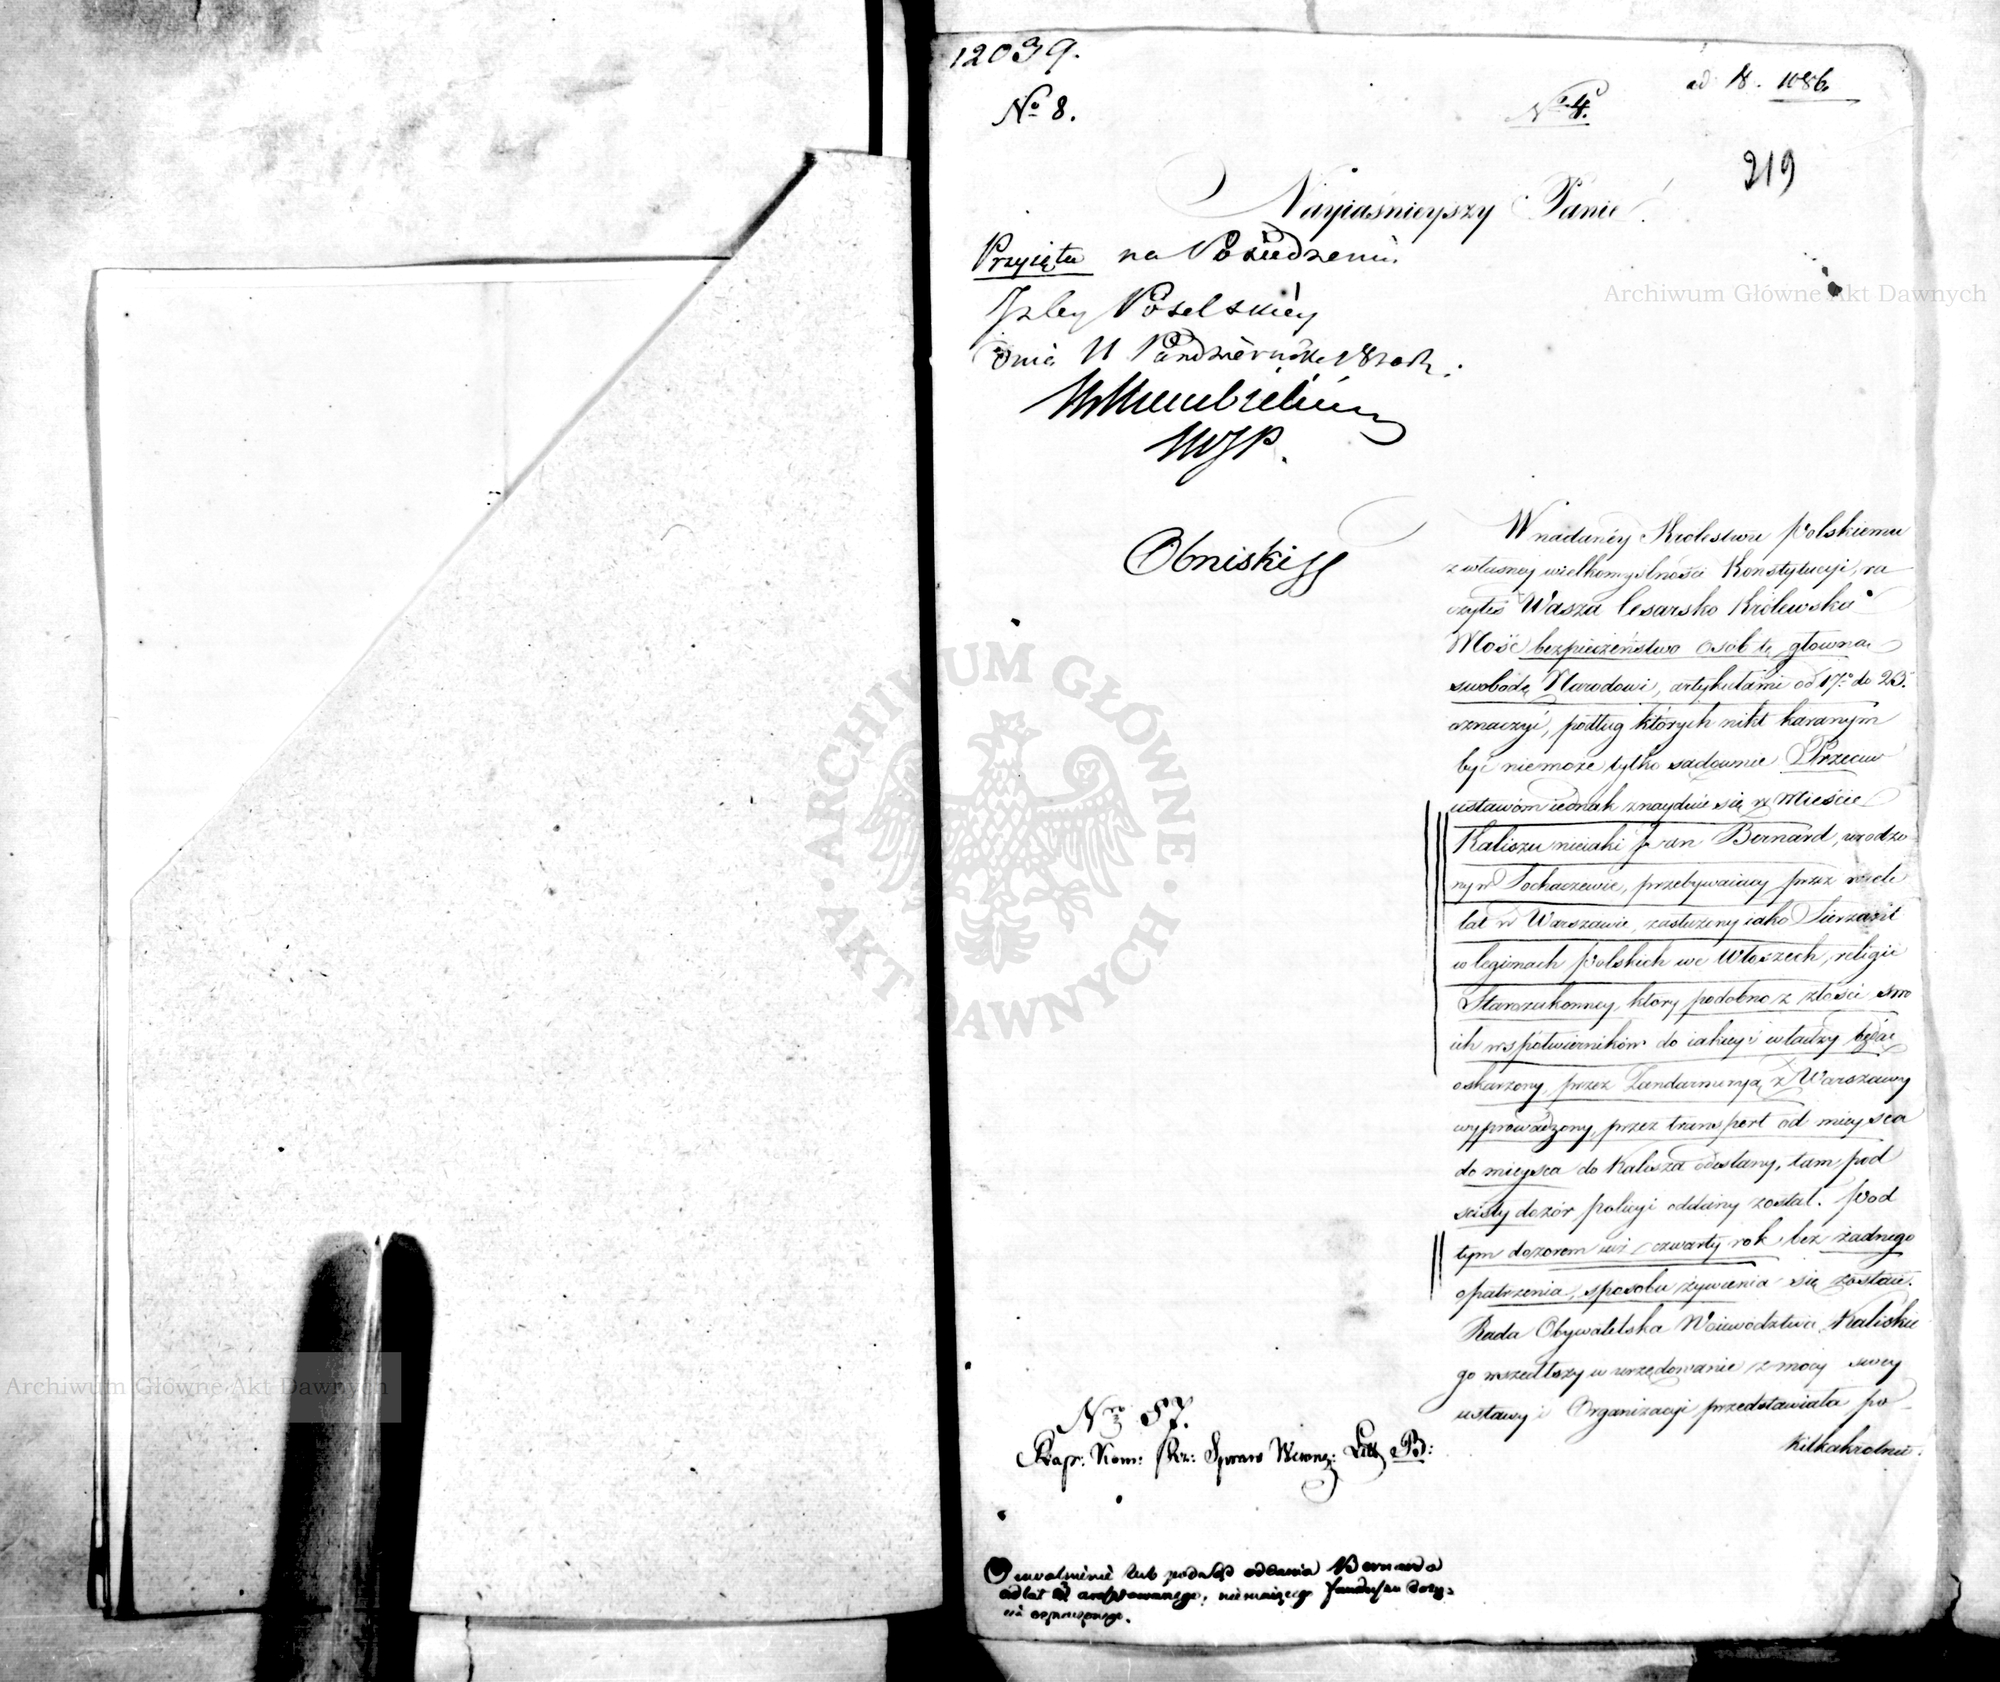 12039.
No 8.
No 4.
ad 18. 1086.
219
Nayiaśnieyszy Panie!
Przyięta na Posiedzeniu
Izby Poselskiéy
dnia 11 Pazdziernika 1820 R:
MJP.
Obniski
W nadanéy Królestwu Polskiemu
z własney wielkomyślności Konstytucyi, ra
czyłeś Wasza Cesarsko Królewska
Mość bezpieczeństwo osób tę główną
swobodę Narodowi, artykułami od 17o do 23o
oznaczyć, podług których nikt karanym
być niemoże tylko sądownie Przeciw
ustawóm iednak znayduie się w Mieście
Kaliszu nieiaki Jan Bernard, urodzo
ny w Sochaczewie, przebywaiący przez wiele
lat w Warszawie, zasłużony iako Sierżant
w legionach Polskich we Włoszech, religii
Starozakonney, który podobno z złości swo
ich współwierników do iakieyi władzy będąc
oskarżony, przez Żandarmeryą z Warszawy
wyprowadzony, przez transport od mieysca
do mieysca do Kalisza odesłany, tam pod
ścisły dozór policyi oddany został. Pod
tym dozorem iuż czwarty rok bez żadnego
opatrzenia, sposobu żywienia się zostaie.
Rada Obywatelska Woiewództwa Kaliskie
go wszedłszy w urzędowanie z mocy swey
ustawy i Organizacyi przedstawiała po
kilkakrotnie
Nro 57.
Rap: Kom: Rz: Spraw Wewnę: Litt B:
O uwolnienie lub pod sąd oddania Bernarda
od lat 4 aresztowanego, niemaiącego funduszu do ży=
cia